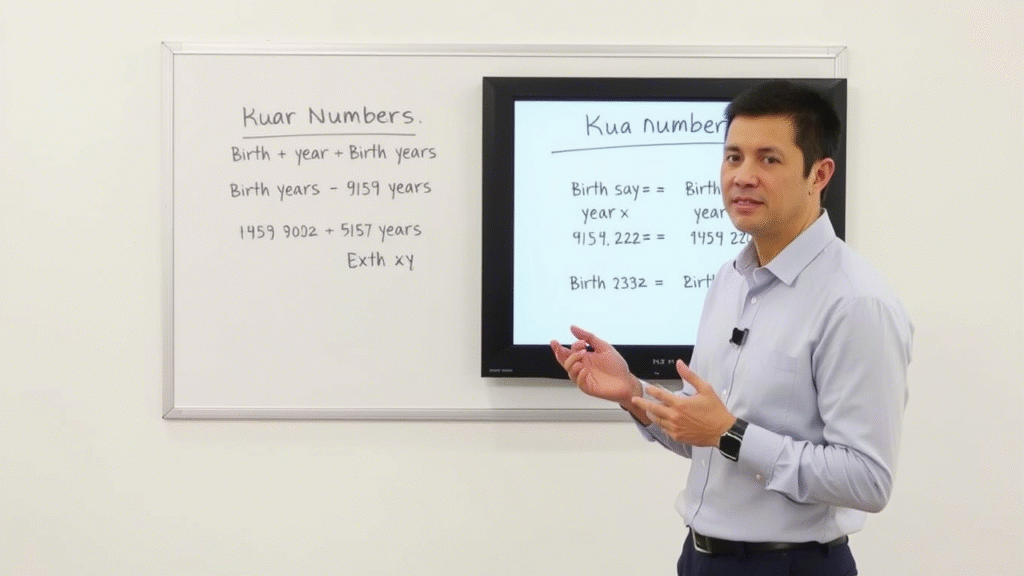 Kuar Numbers.
Birth + year + Birth years
Birth years - 9159 years
1459 9002 + 5157 years
Exth xy
Kua number
Birth say = = Birth
year x year
9154.222 = = 1454 22
Birth 2332 = Birt